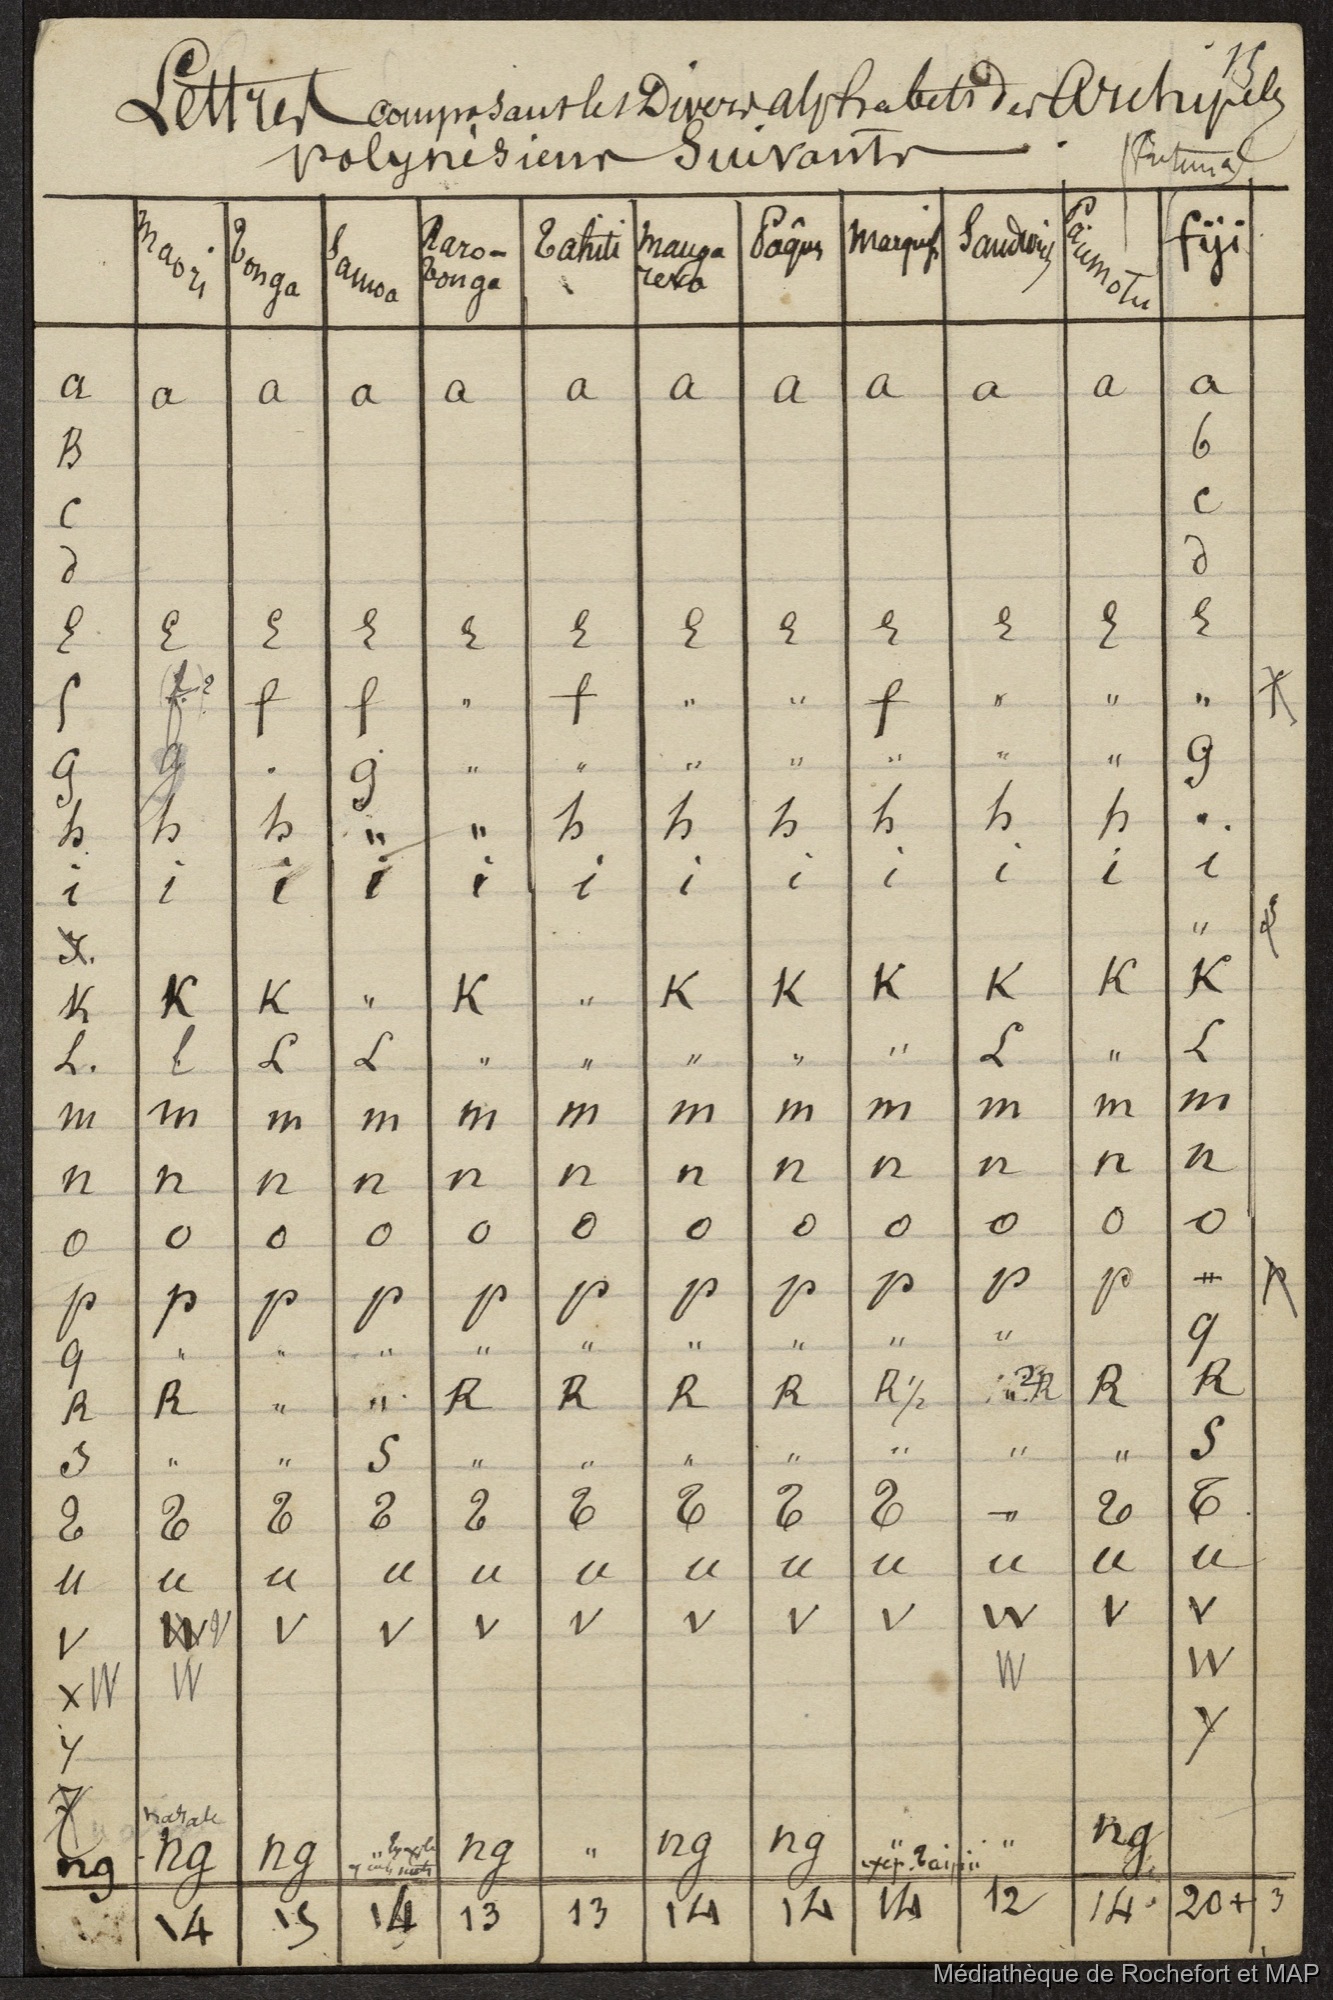 15
Lettres composant les Divers alphabets des Archipels
polynésiens Suivants
(Futuna)
Maori Tonga Samoa Raro-tonga Tahiti Manga reva Pâques Marquis Sandwich Païumotu fiji
a a a a a a a a a a a a
B b
c c
d d
E E E E E E E E E E E E
f (f.)? f f " f " " f " " "
g g . g " " " " " " " g
h h h " " h h h h h h " .
i i i i i i i i i i i i
J. "
K K K " K " K K K K K K
L. l L L " " " " " L " L
m m m m m m m m m m m m
n n n n n n n n n n n n
o o o o o o o o o o o o
p p p p p p p p p p p
q " " " " " " " " " q
R R " " R R R R R 1/2 " R R R
S " " S " " " " " " " S
T T T T T T T T T " T T
u u u u u u u u u u u u
v W V v v v v v v v w v v
x W W W W
y y
Z
ng nasale ng ng " ng " ng ng " excep. Taipii " ng
14 15 14 13 13 14 14 14 12 14 20 + 3
Médiathèque de Rochefort et MAP